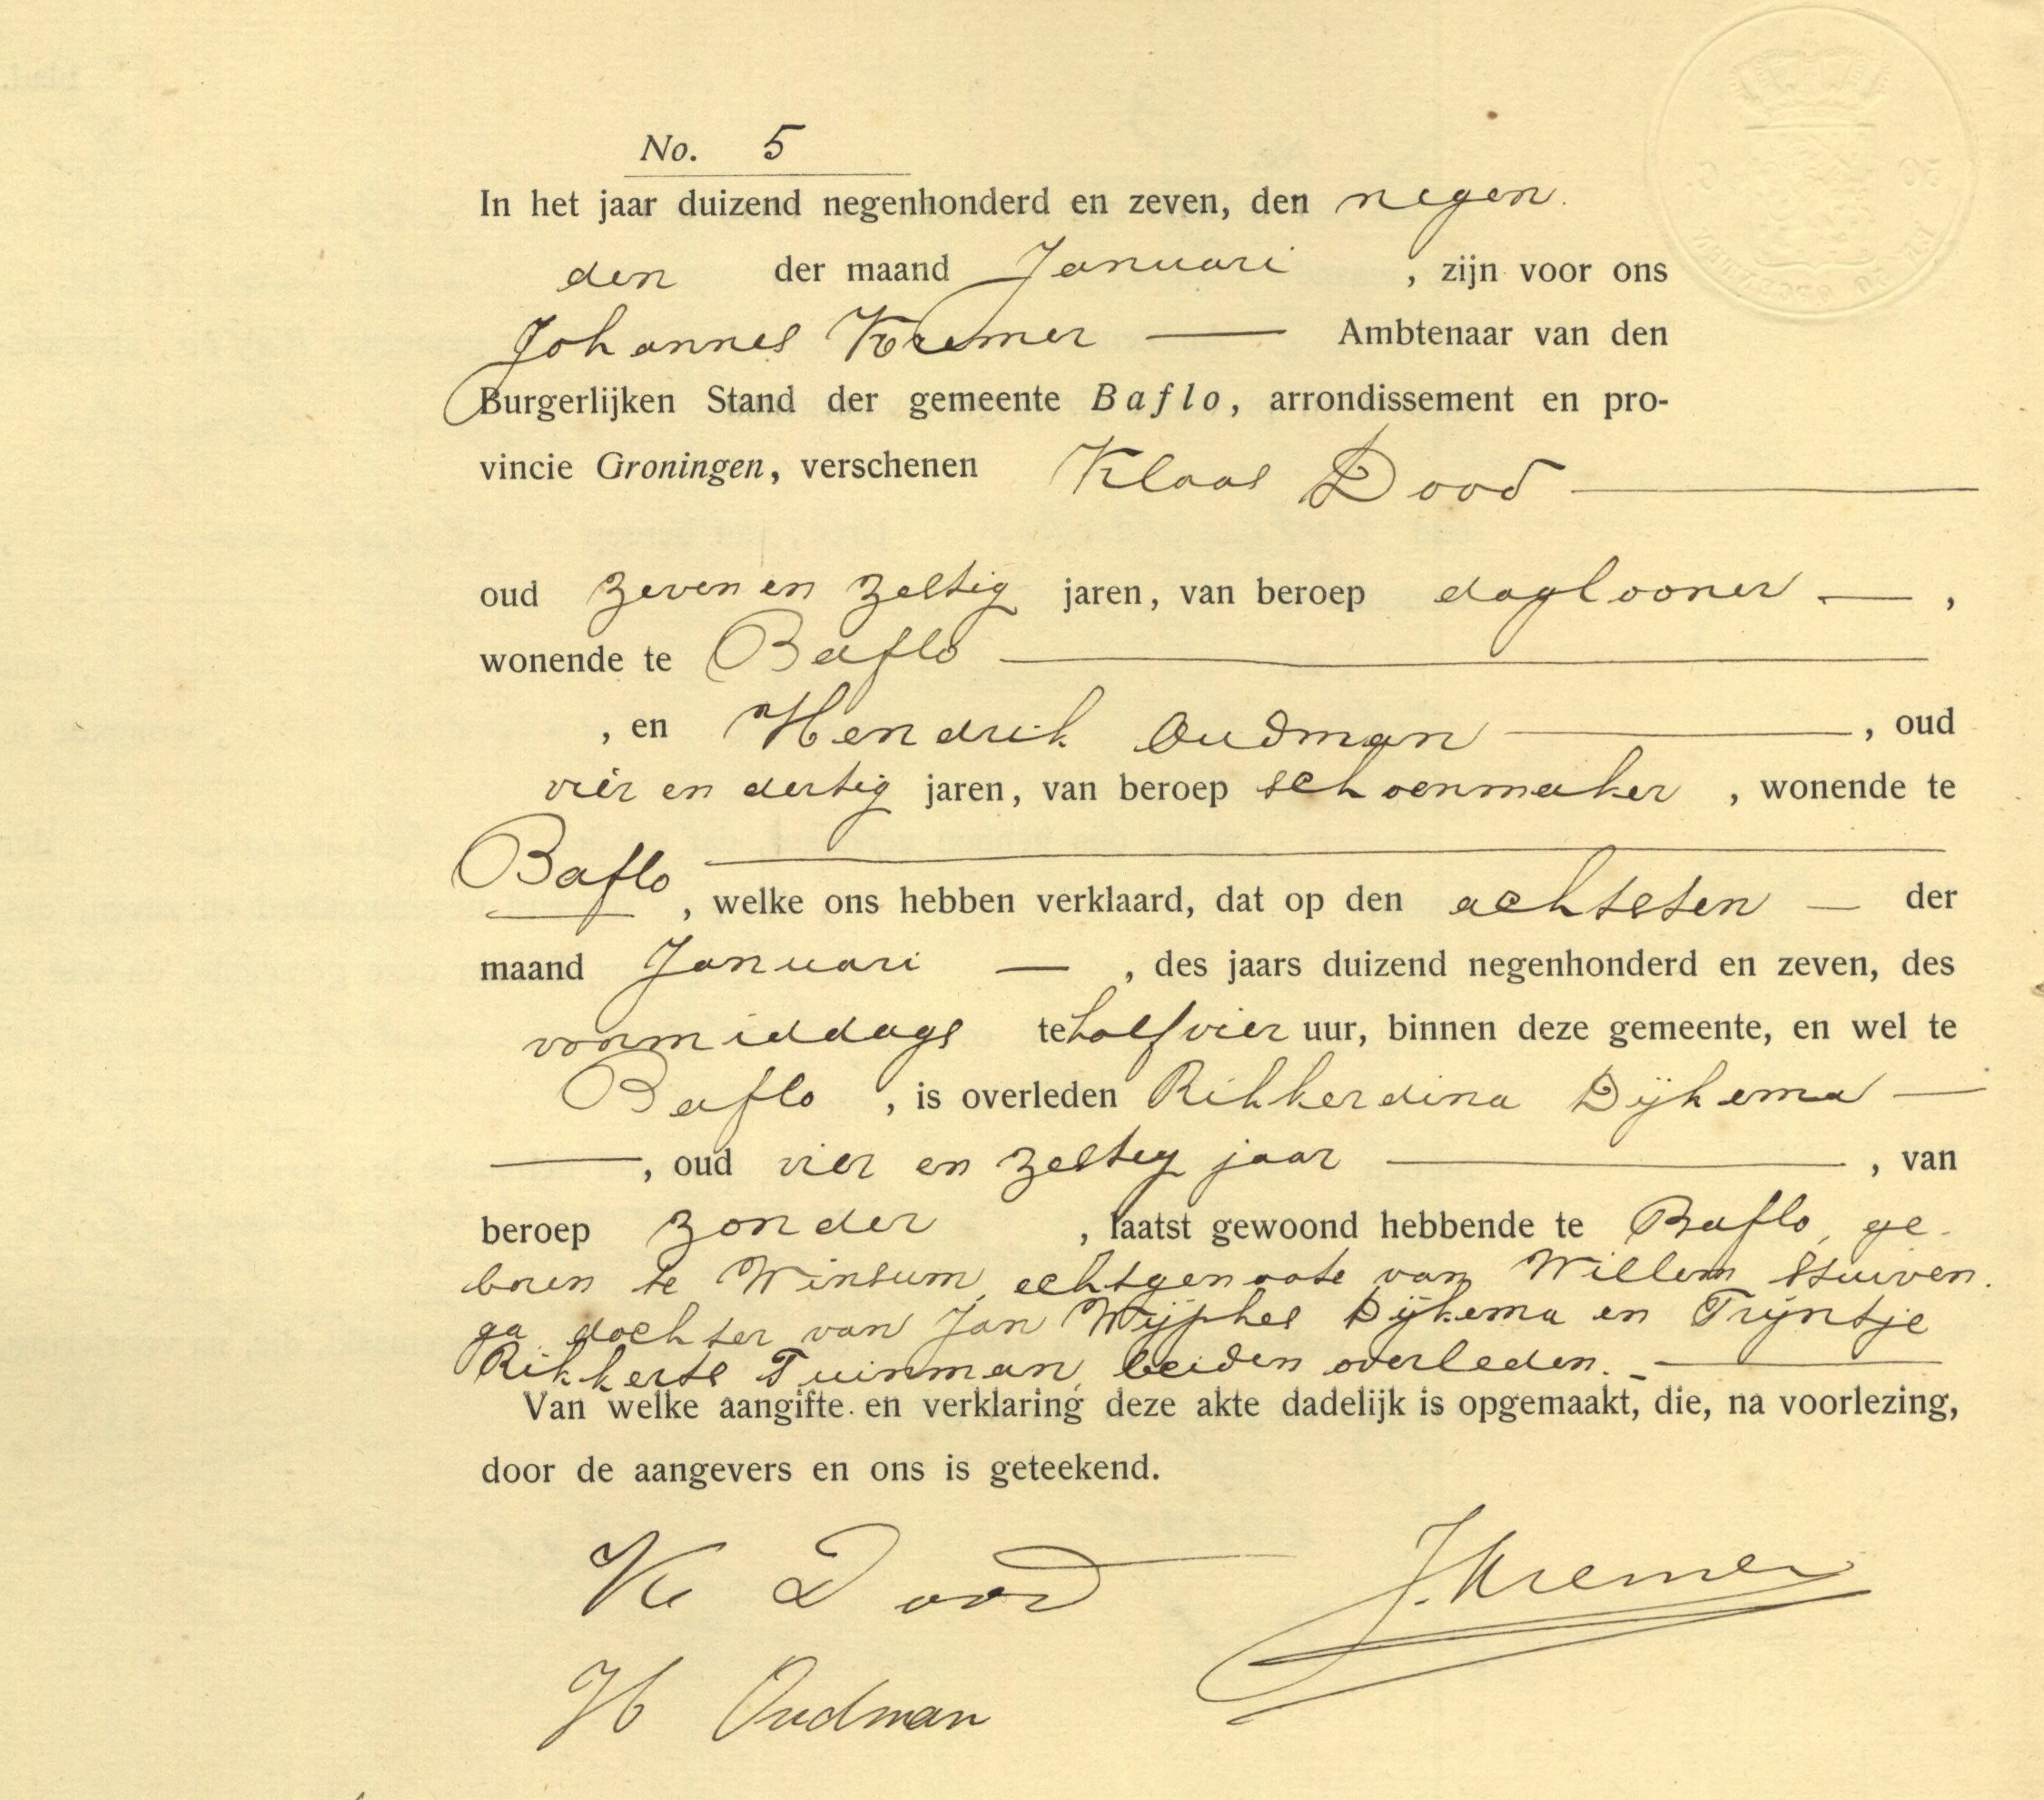 No. 5
In het jaar duizend negenhonderd en zeven, den negen.
den der maand Januari , zijn voor ons
Johannes Kremer — Ambtenaar van den
Burgerlijken Stand der gemeente Baflo, arrondissement en pro-
vincie Groningen, verschenen Klaas Dood —
oud zeven en zestig jaren, van beroep daglooner — ,
wonende te Baflo —
, en Hendrik Oudman — , oud
vier en dertig jaren, van beroep schoenmaker , wonende te
Baflo —
, welke ons hebben verklaard, dat op den achtsten — der
maand Januari — , des jaars duizend negenhonderd en zeven, des
voormiddags te half vier uur, binnen deze gemeente, en wel te
Baflo , is overleden Rikkerdina Dijkema —
— , oud vier en zestig jaar — , van
beroep zonder , laatst gewoond hebbende te Baflo, ge-
boren te Winsum, echtgenoote van Willem Stuiven.
ga, dochter van Jan Wijphes Dijkema en Trijntje
Rikkerts Tuinman, beiden overleden. —
Van welke aangifte en verklaring deze akte dadelijk is opgemaakt, die, na voorlezing,
door de aangevers en ons is geteekend.
Kl Dood
J. Kremer
H Oudman